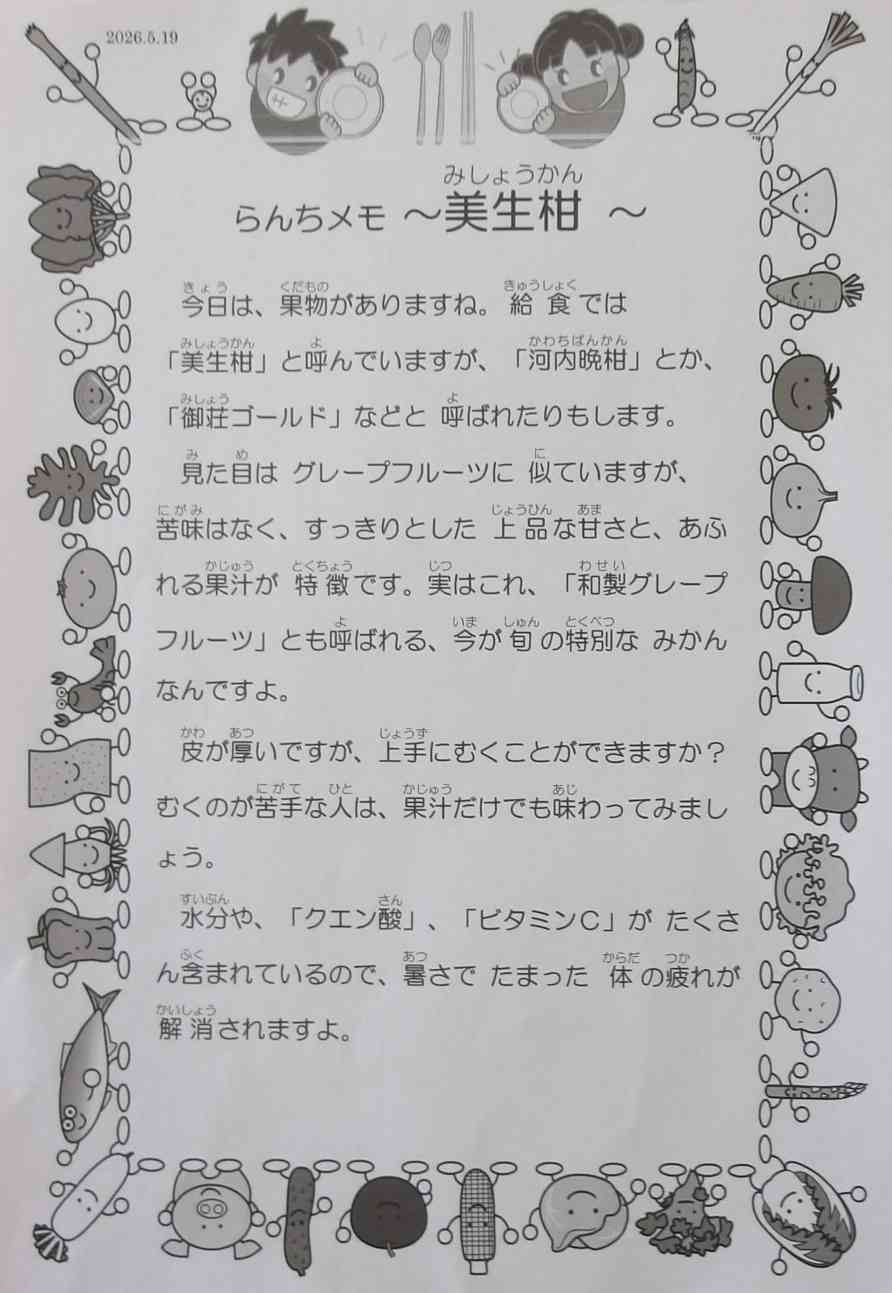 2026.5.19
みしょうかん
らんちメモ ～美生柑 ～
きょう くだもの きゅうしょく
今日は、果物がありますね。給食では
みしょうかん よ かわちばんかん
「美生柑」と呼んでいますが、「河内晩柑」とか、
みしょう よ
「御荘ゴールド」などと 呼ばれたりもします。
み め に
見た目は グレープフルーツに 似ていますが、
にがみ じょうひん あま
苦味はなく、すっきりとした 上品な甘さと、あふ
かじゅう とくちょう じつ わせい
れる果汁が 特徴です。実はこれ、「和製グレープ
よ いま しゅん とくべつ
フルーツ」とも呼ばれる、今が旬の特別な みかん
なんですよ。
かわ あつ じょうず
皮が厚いですが、上手にむくことができますか？
にがて ひと かじゅう あじ
むくのが苦手な人は、果汁だけでも味わってみまし
ょう。
すいぶん さん
水分や、「クエン酸」、「ビタミンC」が たくさ
ふく あつ からだ つか
ん含まれているので、暑さで たまった 体の疲れが
かいしょう
解消されますよ。